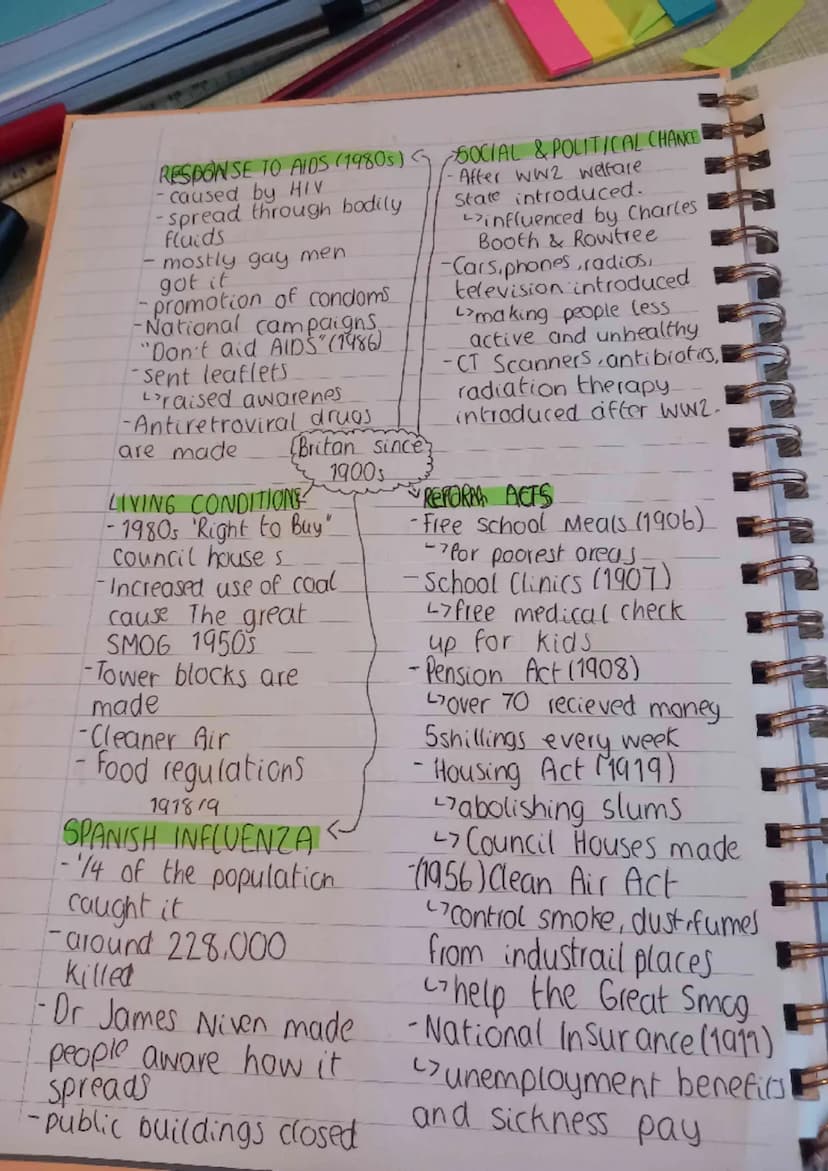 RESPONSE TO AIDS (1980s)
- caused by HIV
- spread through bodily
fluids
- mostly gay men
got it
- promotion of condoms
- National campaigns
"Don't aid AIDS" (1986)
- sent leaflets
↳ raised awarenes
- Antiretroviral drugs
are made
SOCIAL & POLITICAL CHANGE
- After WW2 welfare
state introduced.
↳ influenced by Charles
Booth & Rowtree
- Cars, phones, radios,
television introduced
↳ making people less
active and unhealthy
- CT Scanners, antibiotics,
radiation therapy
introduced after WW2.
Britan since
1900s
LIVING CONDITIONS
- 1980s 'Right to Buy"
council house s
- Increased use of coal
cause The great
SMOG 1950s
- Tower blocks are
made
- Cleaner Air
- Food regulations
1918/9
SPANISH INFLUENZA
- 1/4 of the population
caught it
- around 228,000
killed
- Dr James Niven made
people aware how it
spreads
- public buildings closed
REFORM ACTS
- Free school Meals (1906)
↳ for poorest areas
- School Clinics (1907)
↳ free medical check
up for kids
- Pension Act (1908)
↳ over 70 recieved money
5shillings every week
- Housing Act (1919)
↳ abolishing slums
↳ Council Houses made
- (1956) Clean Air Act
↳ control smoke, dust, fumes
from industrail places
↳ help the Great Smog
- National Insurance (1911)
↳ unemployment benefits
and sickness pay